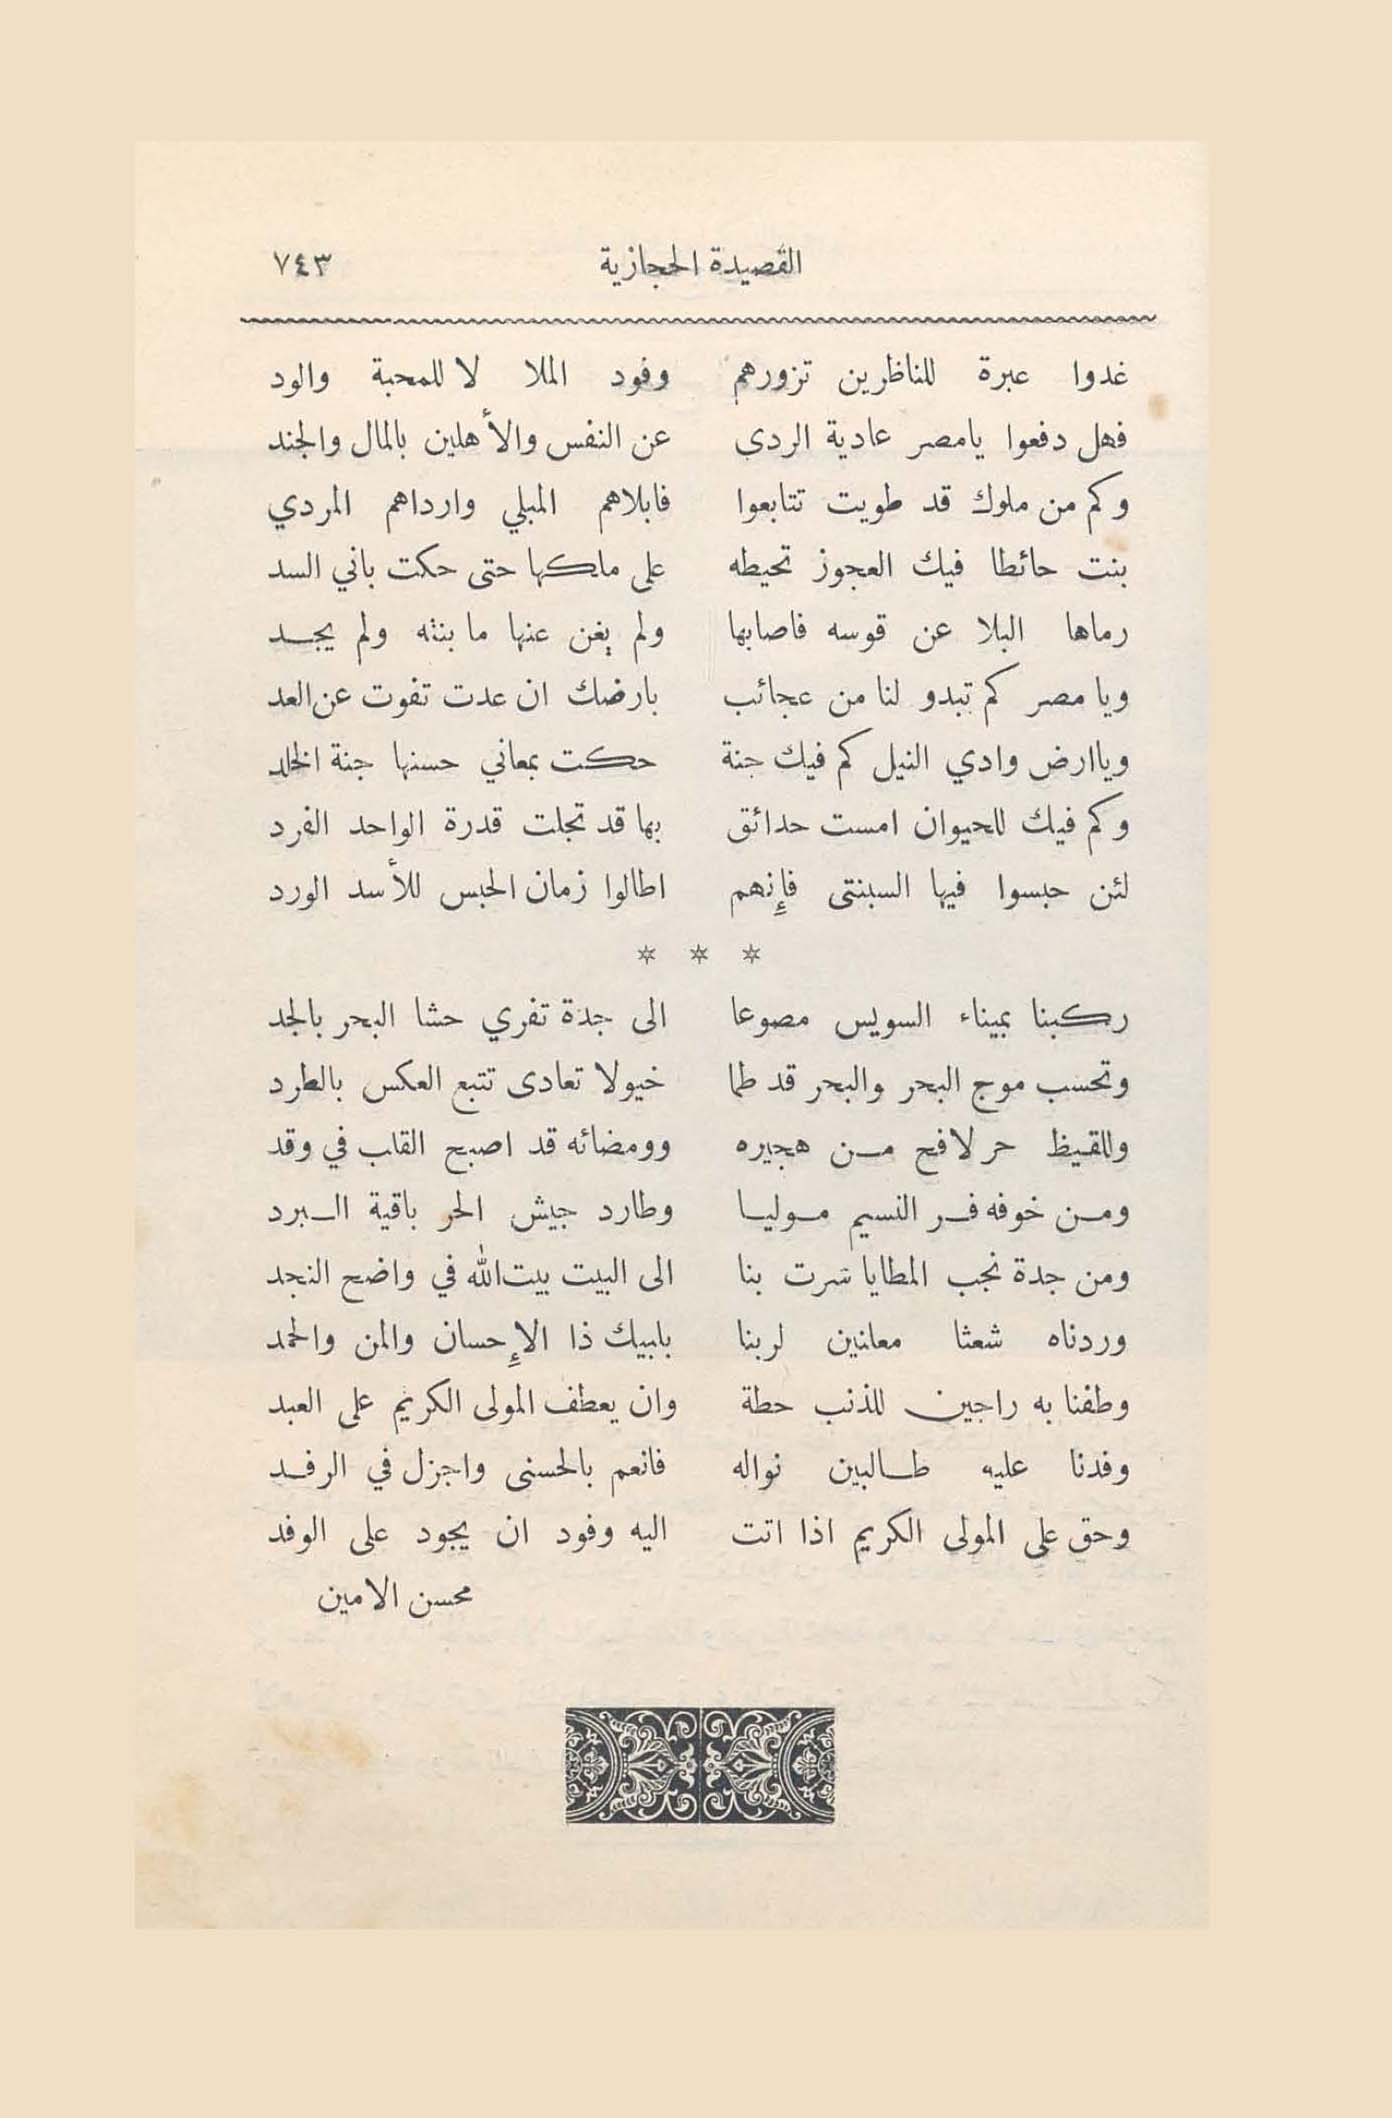 القصيدة الحجازية ٧٤٣
غدوا عبرة للناظرين تزورهم وفود الملا لا للمحبة والود
فهل دفعوا يامصر عادية الردى عن النفس والأهلين بالمال والجند
وكم من ملوك قد طويت تتابعوا فابلاهم المبلي وارداهم المردي
بنت حائطا فيك العجوز تحيطه على ملكها حتى حكت باني السد
رماها البلا عن قوسه فاصابها ولم يغن عنها ما بنته ولم يجـد
ويا مصر كم تبدو لنا من عجائب بارضك ان عدت تفوت عن العد
وياارض وادي النيل كم فيك جنة حكت بمعاني حسنها جنة الخلد
وكم فيك للحيوان امست حدائق بها قد تجلت قدرة الواحد الفرد
لئن حبسوا فيها السبنتى فإنهم اطالوا زمان الحبس للأسد الورد
* * *
ركبنا بميناء السويس مصوعا الى جدة تفري حشا البحر بالجد
وتحسب موج البحر والبحر قد طما خيولا تعادى تتبع العكس بالطرد
وللقيظ حر لافح مـن هجيره وومضائه قد اصبح القلب في وقد
ومـن خوفه فـر النسيم مـوليـا وطارد جيش الحر باقية الـبرد
ومن جدة نجب المطايا سرت بنا الى البيت بيت الله في واضح النجد
وردناه شعثا معلنين لربنا بلبيك ذا الإحسان والمن والحمد
وطفنا به راجين للذنب حطة وان يعطف المولى الكريم على العبد
وفدنا عليه طـالبين نواله فانعم بالحسنى واجزل في الرفـد
وحق على المولى الكريم اذا اتت اليه وفود ان يجود على الوفد
محسن الامين